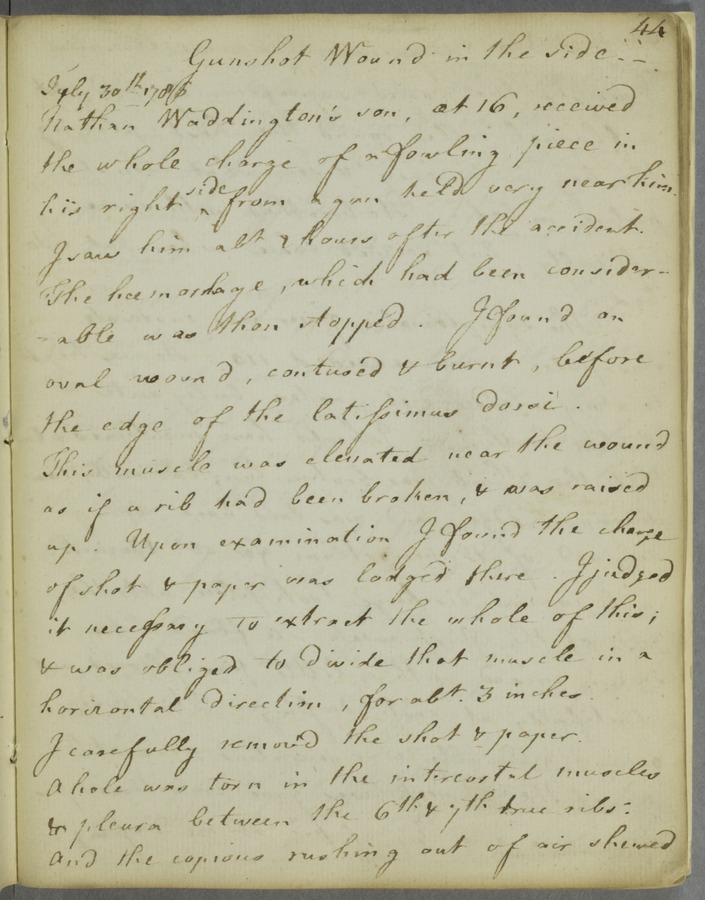 44
Gunshot Wound in the side. -
July 30th 1786
Nathan Waddington's son, æt 16, received
the whole charge of a fowling piece in
his right side from a gun held very near him.
I saw him abt 2 hours after the accident.
The hæmorrhage, which had been consider-
-able was then stopped. I found an
oval wound, contused & burnt, before
the edge of the latissimus dorsi.
This muscle was elevated near the wound
as if a rib had been broken, & was raised
up. Upon examination I found the charge
of shot & paper was lodged there. I judged
it necessary to extract the whole of this;
& was obliged to divide that muscle in a
horizontal direction, for abt. 3 inches.
I carefully remov'd the shot & paper.
A hole was torn in the intercostal muscles
& pleura between the 6th & 7th true ribs:
And the copious rushing out of air shewed